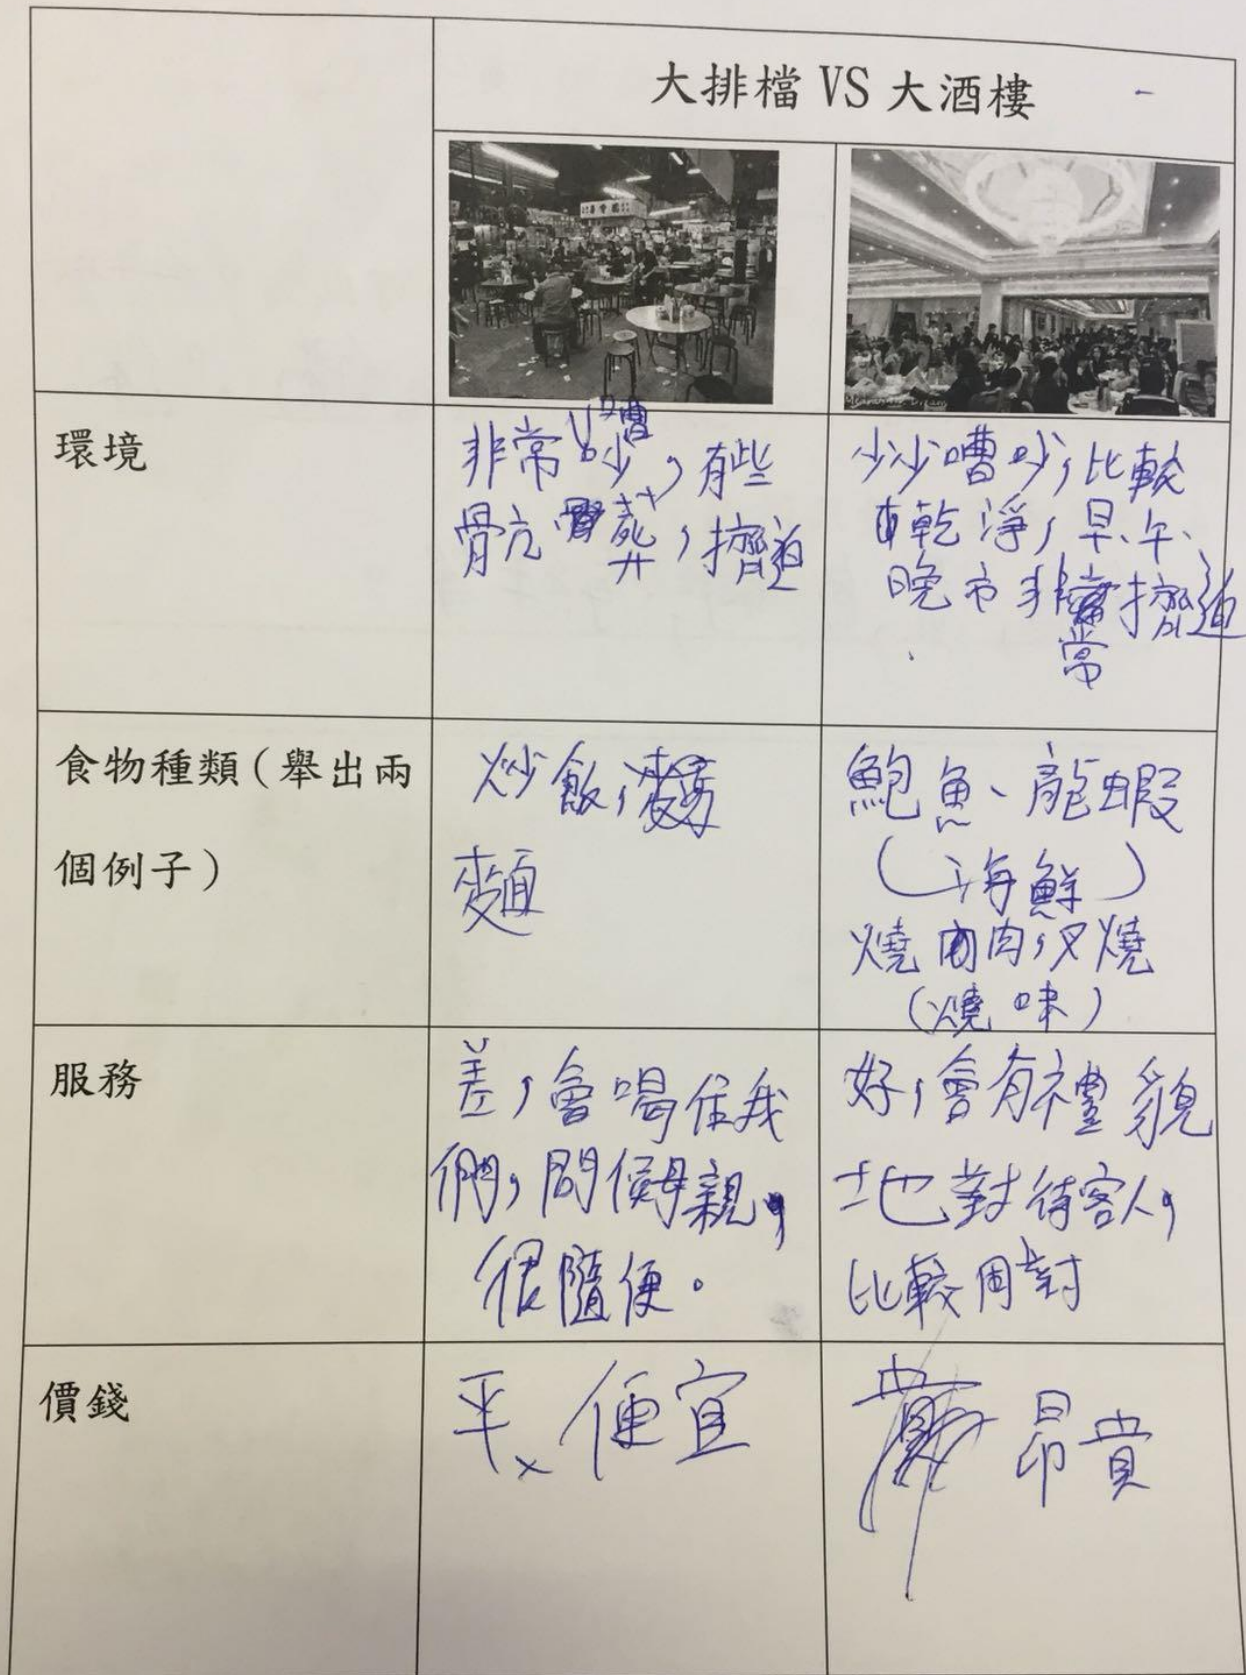 大排檔 VS 大酒樓
環境
非常嘈吵，有些
骯髒，擠逼
少少嘈吵，比較
乾淨，早、午、
晚市非常擠逼
食物種類（舉出兩
個例子）
炒飯，
麵
鮑魚、龍蝦
（海鮮）
燒肉，叉燒
（燒味）
服務
差，會喝住我
們，問候母親，
很隨便。
好，會有禮貌
地對待客人，
比較周對
價錢
平、便宜
昂貴